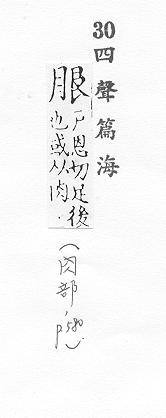 30 四聲篇海
戶恩切足後
也或从肉.
(肉部, p580.)